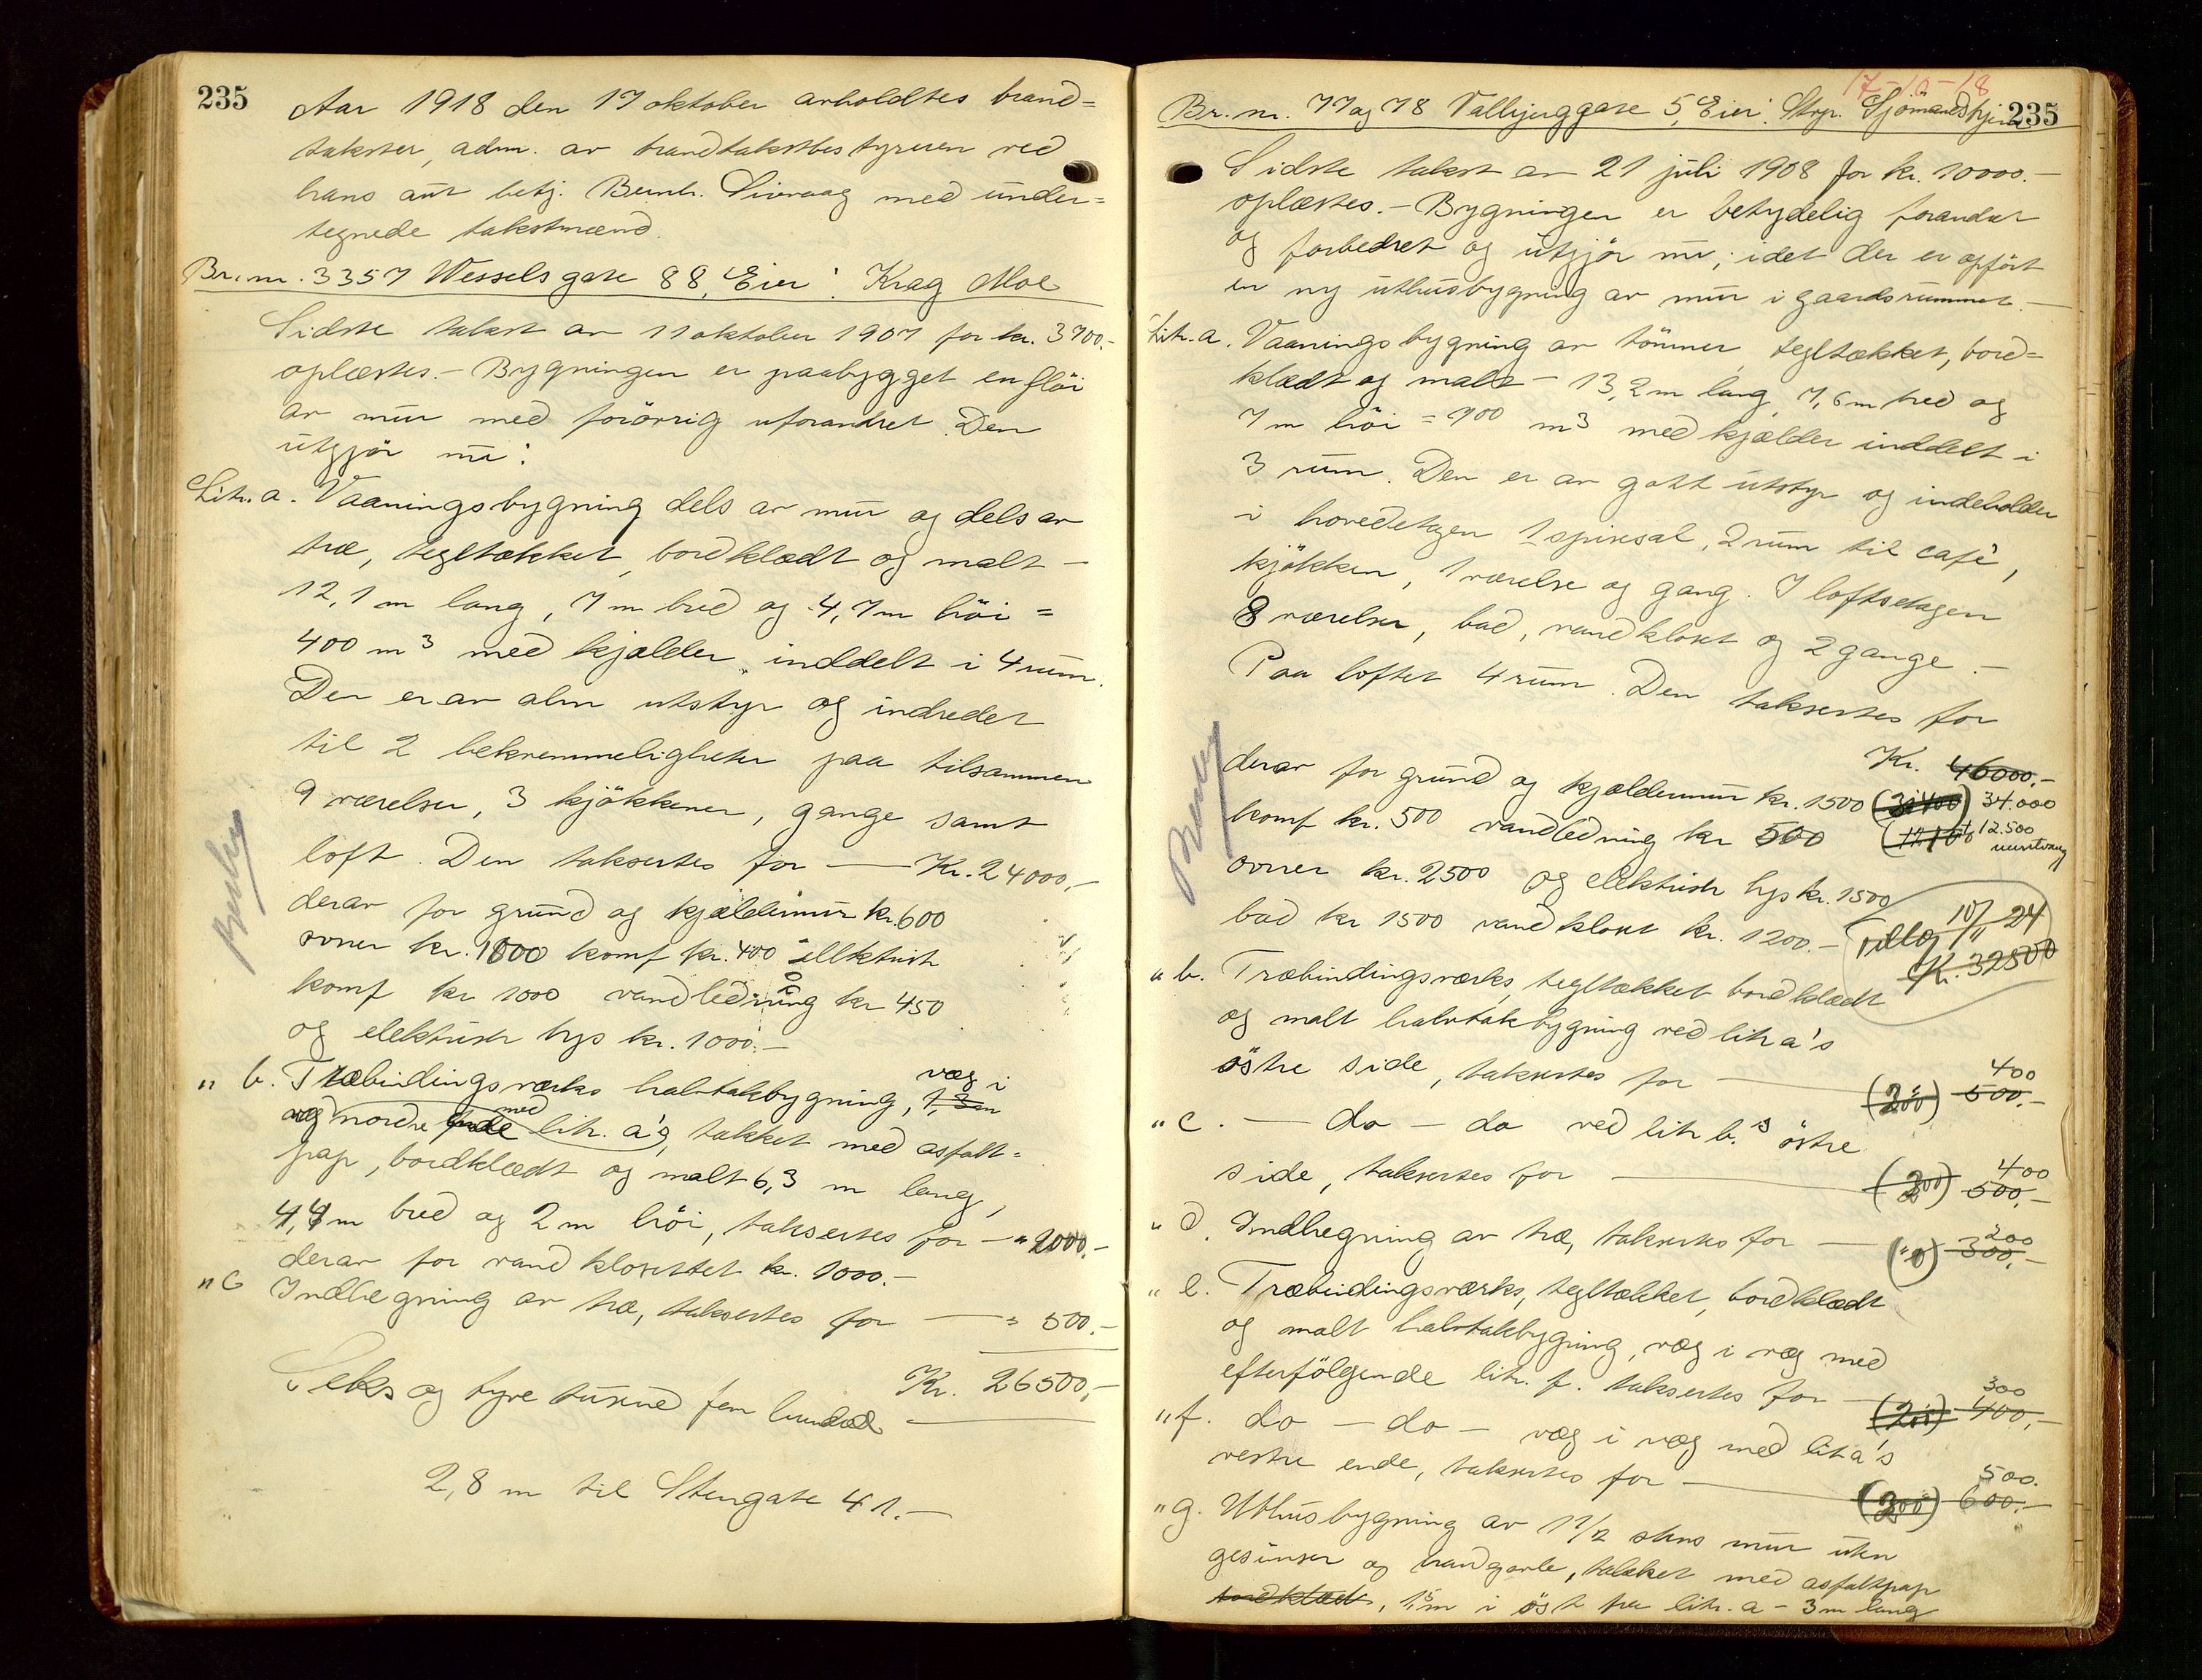 235
Aar 1918 den 17 oktober avholdtes brand=
takster, adm. av brandtakstbestyreren ved
hans aut betj. Bernh. Sivraag med under=
tegnede takstmænd.
Br. nr. 3357 Wesselsgate 88, Eier: Krag Moe
Sidste takst av 11 oktober 1907 for kr. 3700.-
oplæstes. - Bygningen er paabygget en flöi
av mur med forövrig uforandret. Den
utgjör nu:
Litr. a. Vaaningsbygning dels av mur og dels av
træ, tegltækket, bordklædt og malt -
12,1 m lang, 7 m bred og 4,7 m höi =
400 m3 med kjælder inddelt i 4 rum.
Den er av alm utstyr og indredet
til 2 bekvemmeligheter paa tilsammen
9 værelser, 3 kjökkener, gange samt
loft. Den taksertes for — Kr. 24000,-
derav for grund og kjældermur kr. 600
ovner kr. 1000 komf kr. 400 elektrisk
komf kr 1000 vandledning kr 450
og elektrisk lys kr. 1000.-
" b. Træbindingsværks halvtakbygning, 1,3m væg i
væg nordre ende med litr. a's, tækket med asfalt=
pap, bordklædt og malt 6,3 m lang,
4,4 m bred og 2 m höi, taksertes for - " 2000.-
derav for vandklosettet kr. 1000.-
" c Indhegning av træ, taksertes for — " 500.-
Kr. 26500,-
Seks og tyve tusind fem hundred —
2,8 m til Stengate 41. -
17-10-18
Br. nr. 77 og 78 Valbjerggate 5, Eier: Stvgr. Sjömandshjem
235
Sidste takst av 21 juli 1908 for kr. 10000.-
oplæstes. - Bygningen er betydelig forandret
og forbedret og utgjör nu; idet der er opfört
en ny uthusbygning av mur i gaardsrummet. -
Litr. a. Vaaningsbygning av tömmer, tegltækket, bord=
klædt og malt - 13,2 m lang, 7,6 m bred og
7 m höi = 700 m3 med kjælder inddelt i
3 rum. Den er av godt utstyr og indeholder
i hovedetagen 1 spisesal, 2 rum til café,
kjökken, 1 værelse og gang. I loftsetagen
8 værelser, bad, vandkloset og 2 gange. -
Paa loftet 4 rum. Den taksertes for
Kr. 46000.-
derav for grund og kjældermur kr. 1500 34.000
komf kr. 500 vandledning kr 500 + 12.500
ovner kr. 2500 og elektrisk lys kr. 1500
bad kr 1500 vandkloset kr. 1200. - Tillæg 10/11 24
Kr. 32500
" b. Træbindingsværks, tegltækket bordklædt
og malt halvtakbygning ved litr a's
östre side, taksertes for — (200) 500.- 400
" c. — do — do ved litr b.'s östre
side, taksertes for — (200) 500,- 400
" d. Indhegning av træ, taksertes for — 300,- 200
" e. Træbindingsværks, tegltækket, bordklædt
og malt halvtakbygning, væg i væg med
efterfölgende litr. f. taksertes for — (200) 400,- 300
" f. do — do — væg i væg med litr a's
vestre ende, taksertes for — (300) 600.- 500.
" g. Uthusbygning av 1 1/2 stens mur uten
gesimser og brandgavle, tækket med asfaltpap
bordklædt, 1,5m i öst fra litr. a - 3 m lang